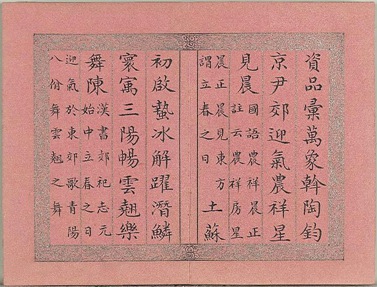 資品彙萬象斡陶鈞
京尹郊迎氣農祥星
見晨 國語農祥晨正
註云農祥房星
晨正晨見東方
謂立春之日 土蘇
初啟蟄冰解躍潛鱗
寰寓三陽暢雲翹樂
舞陳 漢書郊祀志元
始中立春之日
迎氣於東郊歌青陽
八佾舞雲翹之舞